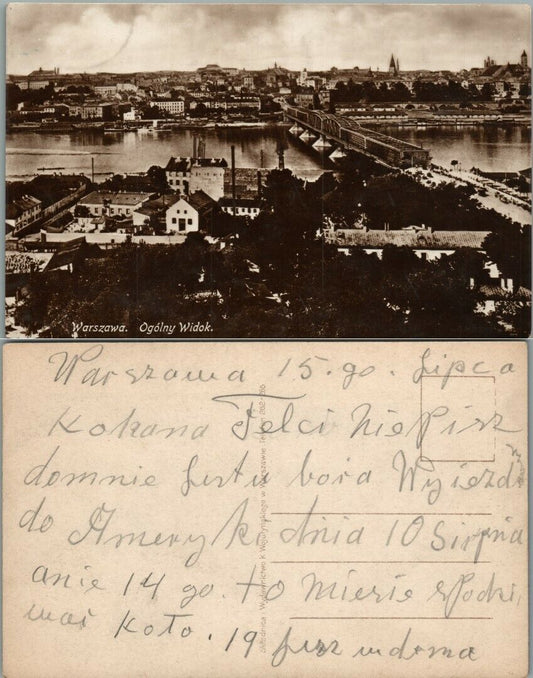 Warszawa. Ogólny Widok.
Warszawa 15.go. Lipca
Kokana Felci Niepisz
domnie Lestu bora Wyjezd
do Ameryk dnia 10 Sierpnia
anie 14 go. to Miesie spodzi
wai Koło. 19